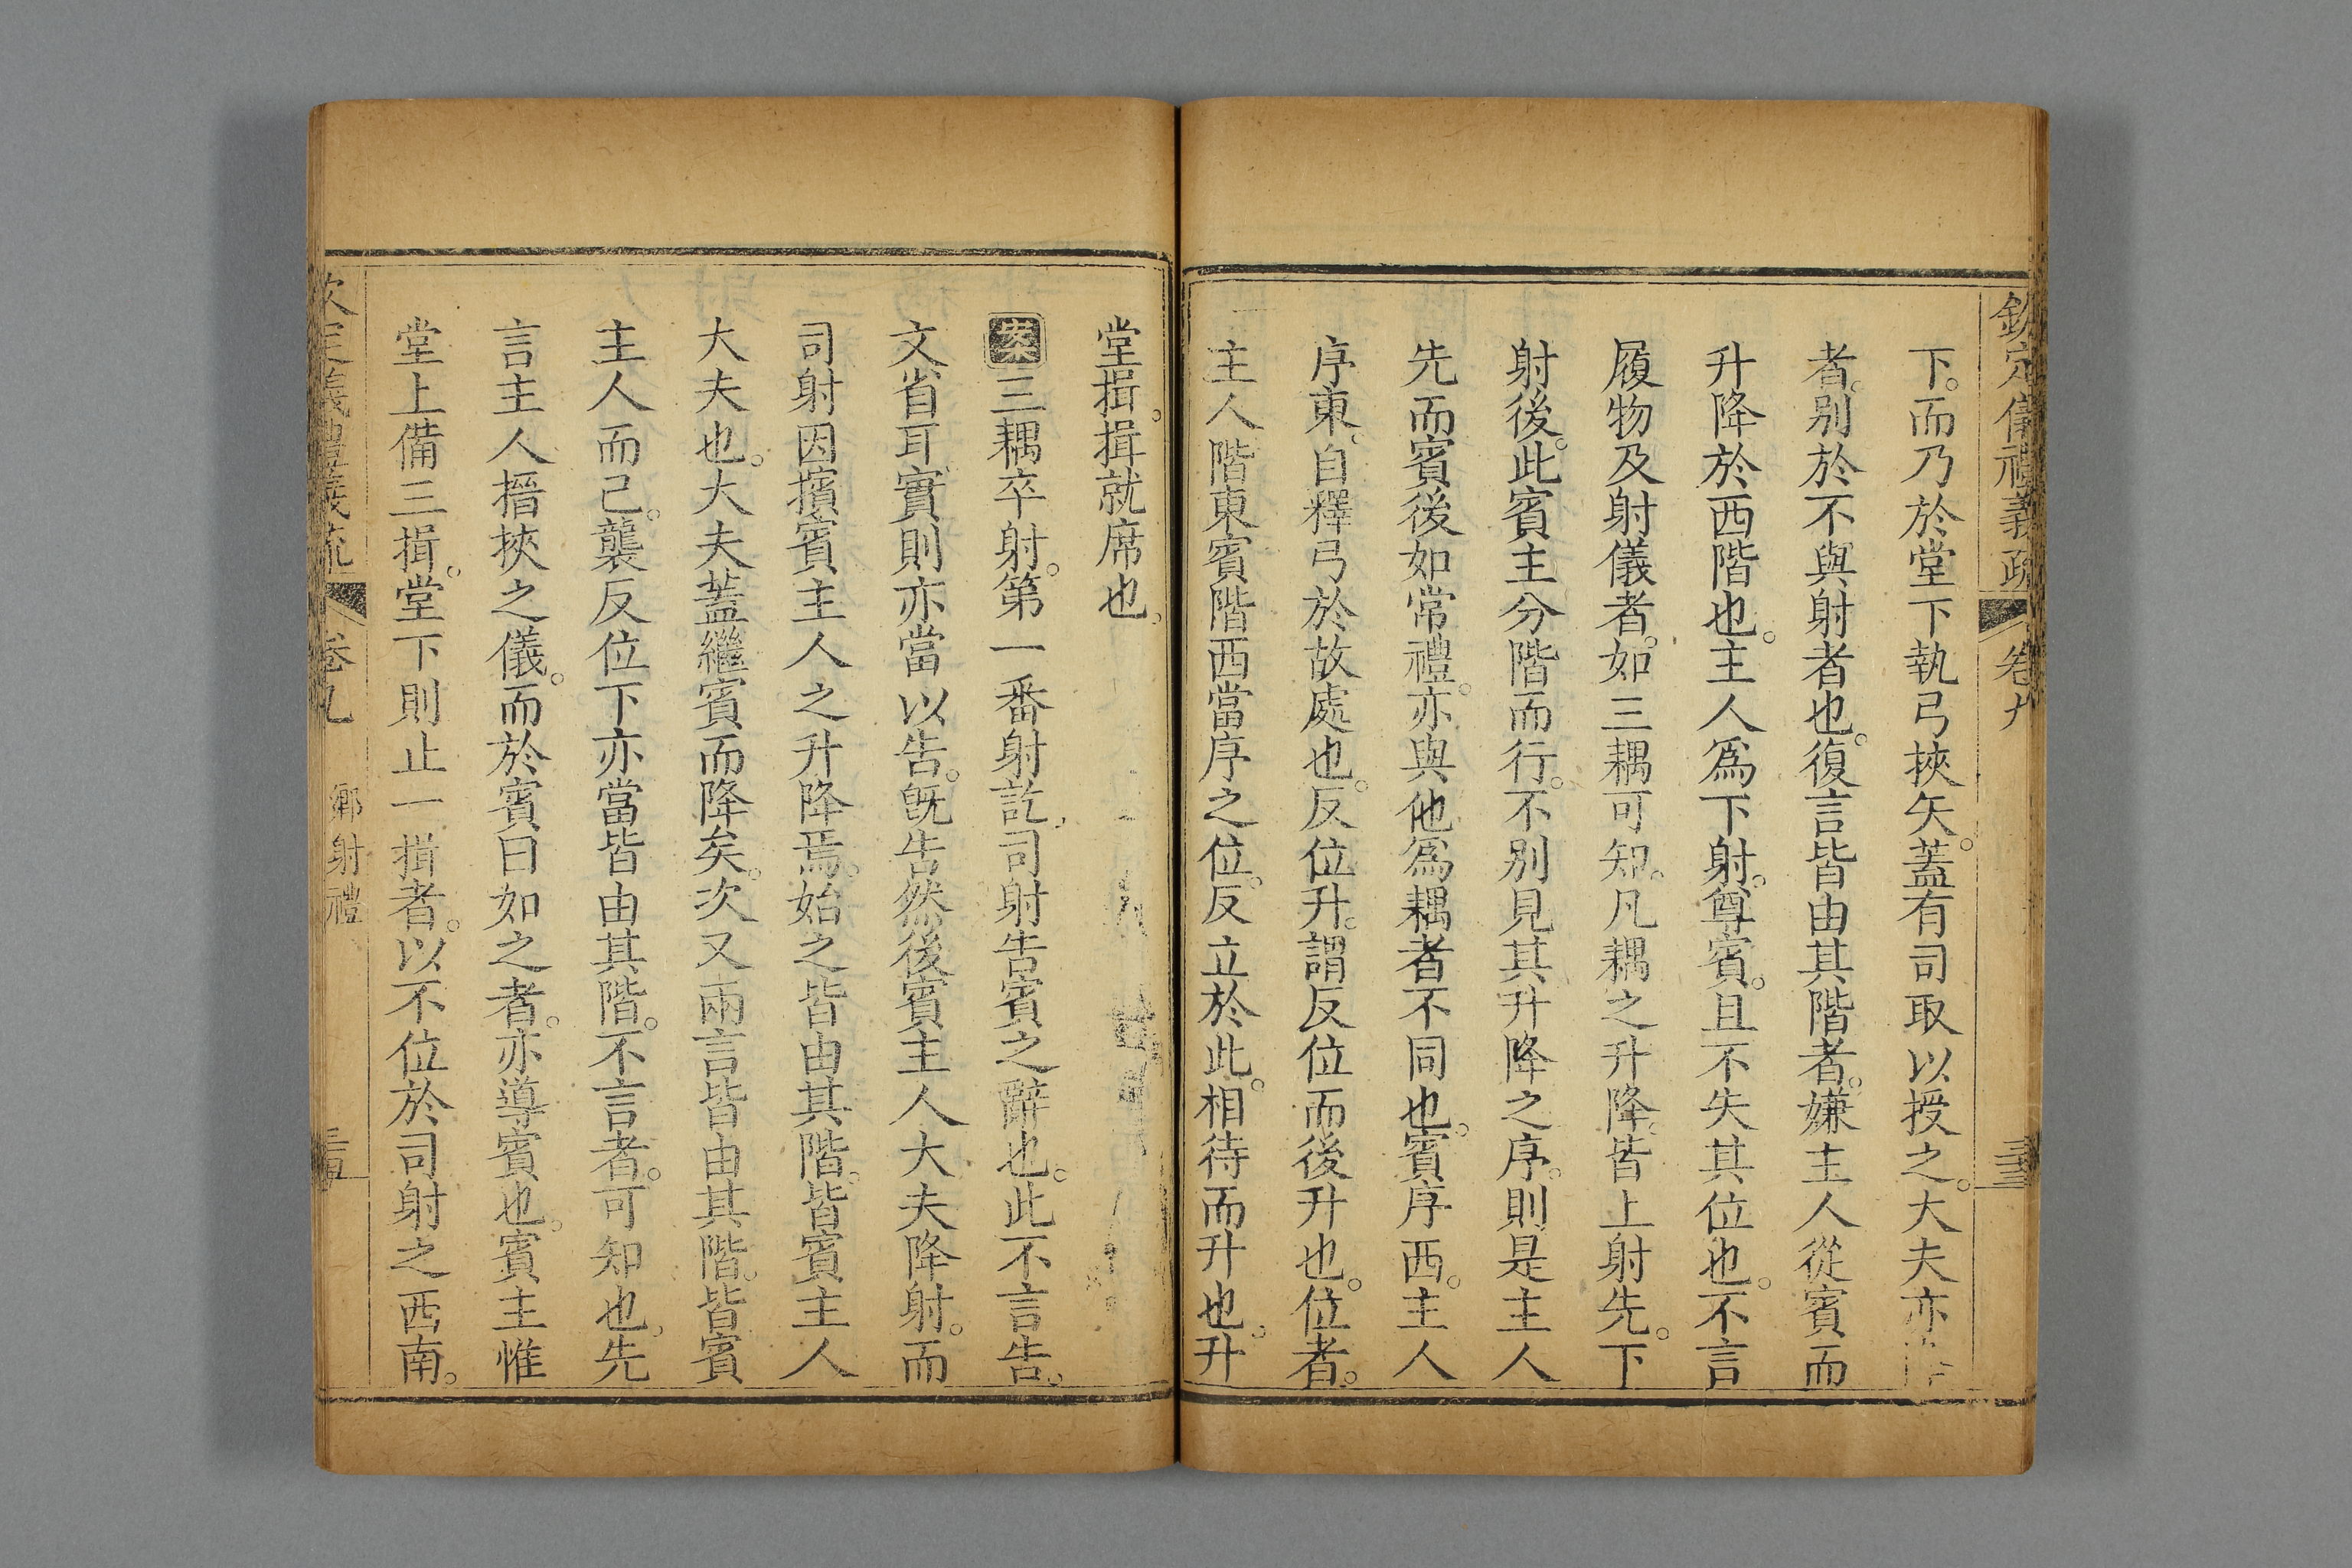 欽定儀禮義疏 卷九
下。而乃於堂下執弓挾矢。蓋有司取以授之。大夫亦
者。别於不與射者也。復言皆由其階者。嫌主人從賓而
升降於西階也。主人爲下射。尊賓。且不失其位也。不言
履物及射儀者。如三耦可知。凡耦之升降。皆上射先。下
射後。此賓主分階而行。不别見其升降之序。則是主人
先而賓後如常禮。亦與他爲耦者不同也。賓序西。主人
序東、自釋弓於故處也。反位升。謂反位而後升也。位者。
主人階東賓階西當序之位。反立於此。相待而升也。升
堂揖。揖就席也。
案三耦卒射。第一番射訖、司射告賓之辭也。此不言告。
文省耳、實則亦當以告。旣告然後賓主人大夫降射。而
司射因擯賓主人之升降焉。始之皆由其階。皆賓主人
大夫也。大夫蓋繼賓而降矣。次又兩言皆由其階。皆賓
主人而已。襲反位下亦當皆由其階。不言者。可知也。先
言主人搢挾之儀。而於賓曰如之者。亦導賓也。賓主惟
堂上備三揖。堂下則止一揖者。以不位於司射之西南。
欽定儀禮義疏 卷九 鄉射禮